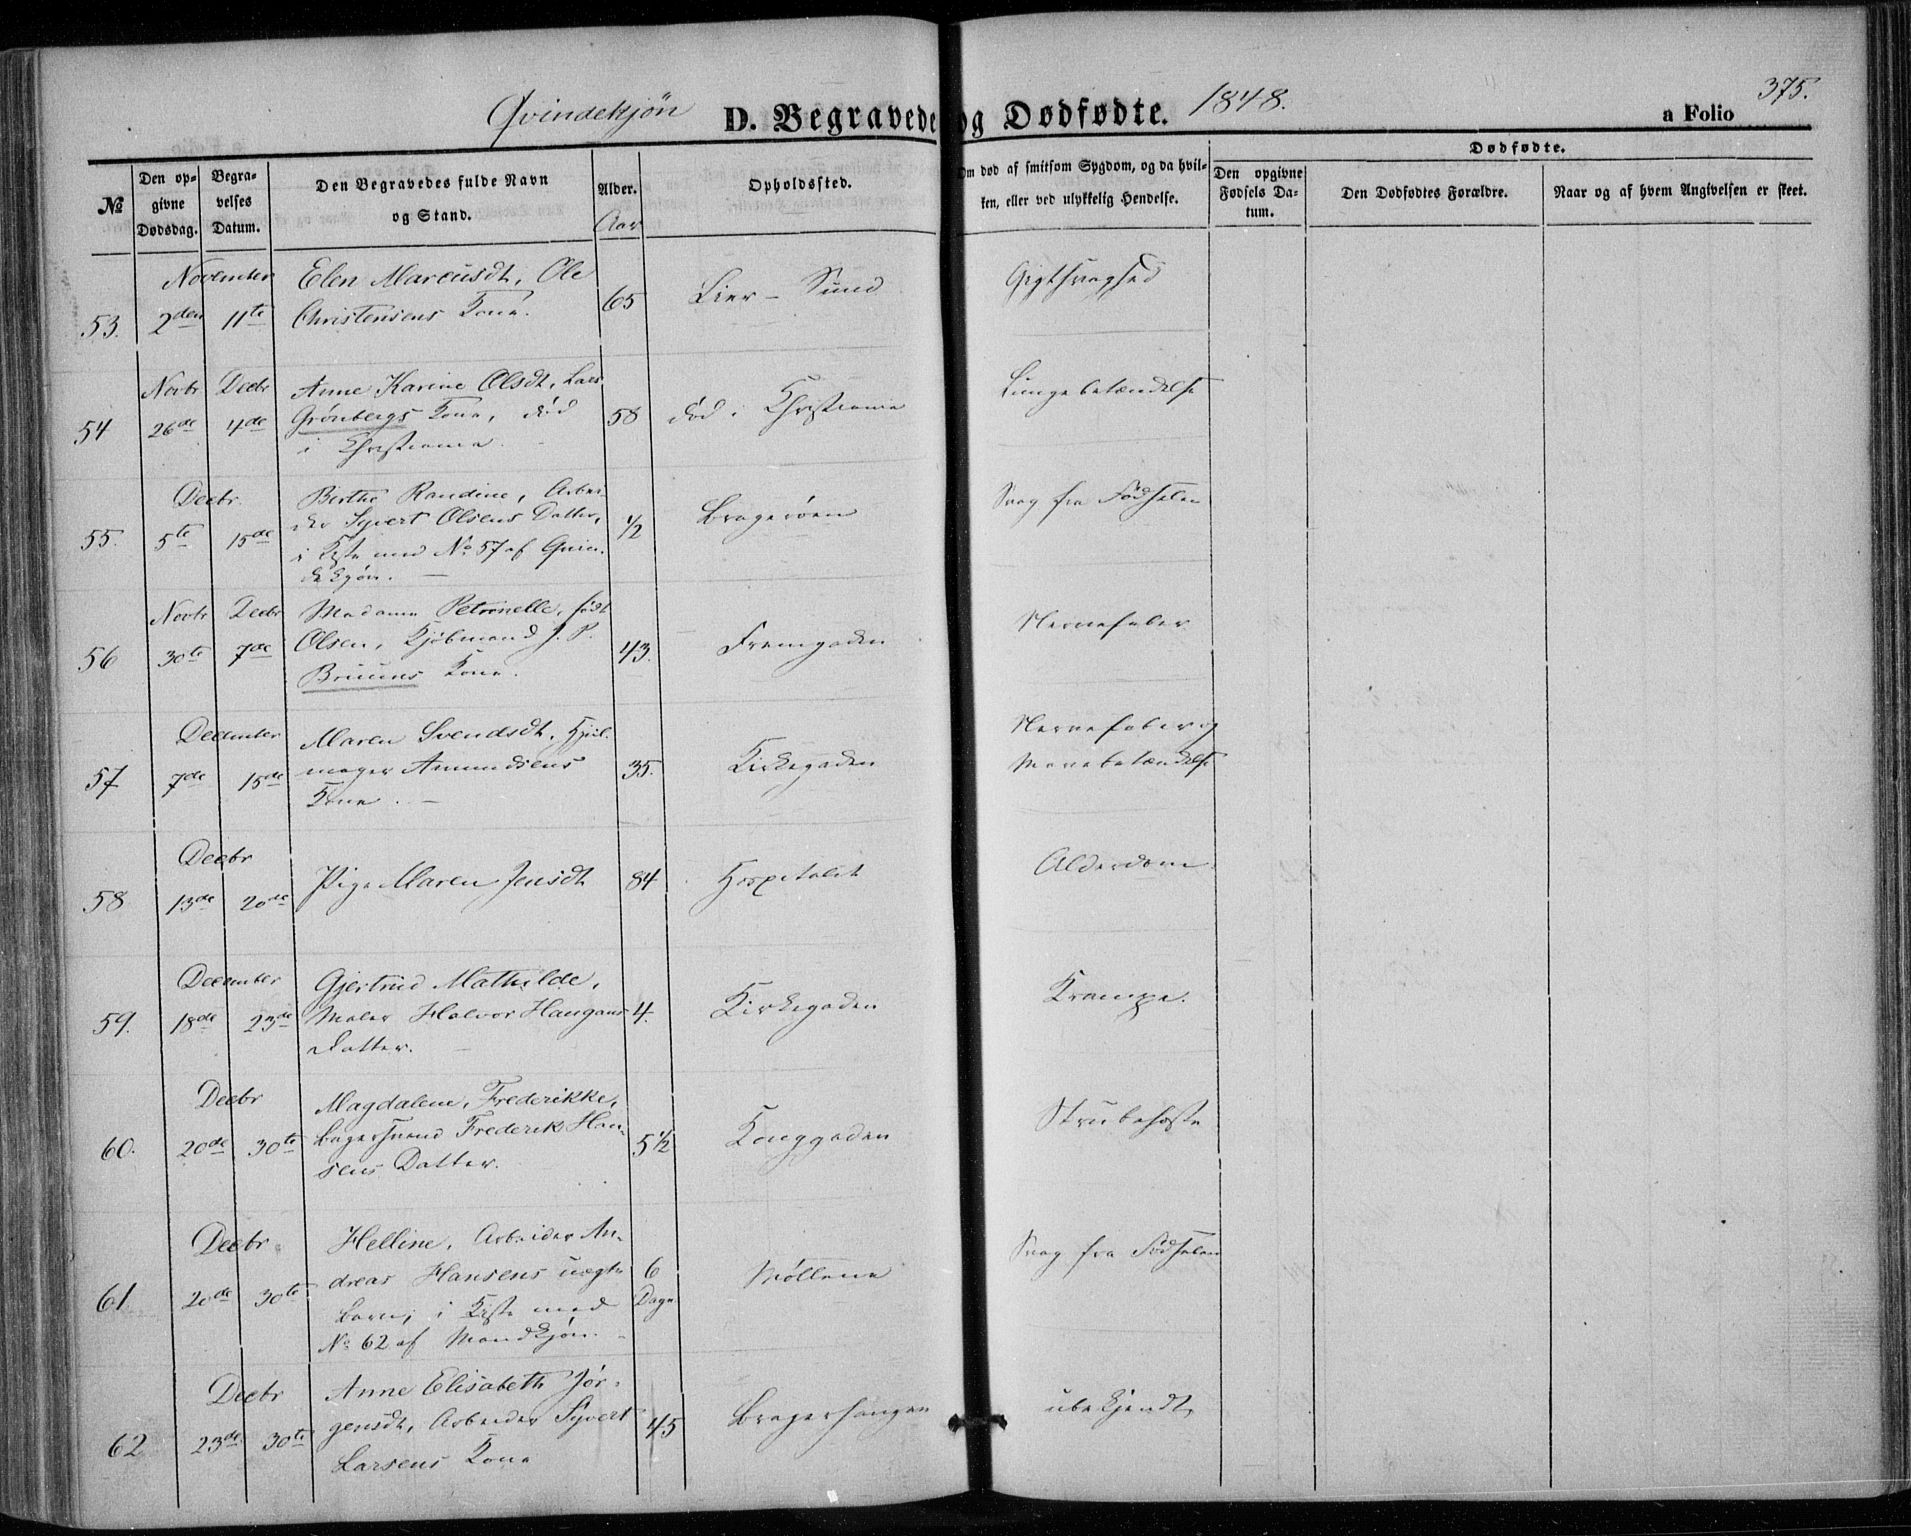 Qvindekjön D. Begravede og Dødfødte. 1848. a Folio 375.
№
Den opgivne Dødsdag.
Begravelses Datum.
Den Begravedes fulde Navn
og Stand.
Alder.
Aar
Opholdssted.
Om død af smitsom Sygdom, og da hvil-
ken, eller ved ulykkelig Hendelse.
Dødfødte.
Den opgivne Fødsels Datum.
Den Dødfødtes Forældre.
Naar og af hvem Angivelsen er skeet.
November Elen Marcusdt, Ole
53. 2den 11te Christensens Kone. 65 Lier - Sund Gigtsvaghed
Novbr Decbr Anne Karine Olsdt, Lars
54 26de 4de Grönbergs Kone, död 58 död i Christiania Lungebetændelse
i Christiania.
Decbr. Birthe Randine, Arbei-
der Syvert Olsens Datter,
55. 5te 15de i Kiste med No 57 af Qvin- 1/2 Bragerøen Svag fra Födselen
dekjön. —
Novbr Decbr Madame Petronelle, födt
56 30te 7de Olsen, Kjöbmand J. P. 43. Fremgaden Nervefeber
Bruuns Kone.
December Maren Svendsdt, Hjul-
57 7de 15de mager Amundsens 35. Kirkegaden Nervefeber og
Kone. — Mavebetændelse
Decbr
58 13de 20de Pige Maren Jensdt 84 Hospitalet Alderdom
December Gjertrud Mathilde,
59. 18de 23de Maler Halvor Haugans 4. Kirkegaden Krampe.
Datter. —
Decbr Magdalene, Frederikke,
60. 20de 30te Bagersvend Frederik Han- 5 1/2 Konggaden Strubehoste
sens Datter.
Decbr. Helline, Arbeider An-
61 20de 30te dreas Hansens uægte 6 Dage Möllene Svag fra Födselen
Barn, i Kiste med
No 62 af Mandkjön. -
Decbr Anne Elisabeth Jör-
62 23de 30te gensdt, Arbeider Syvert 45 Bragerhaugen ubekjendt
Larsens Kone